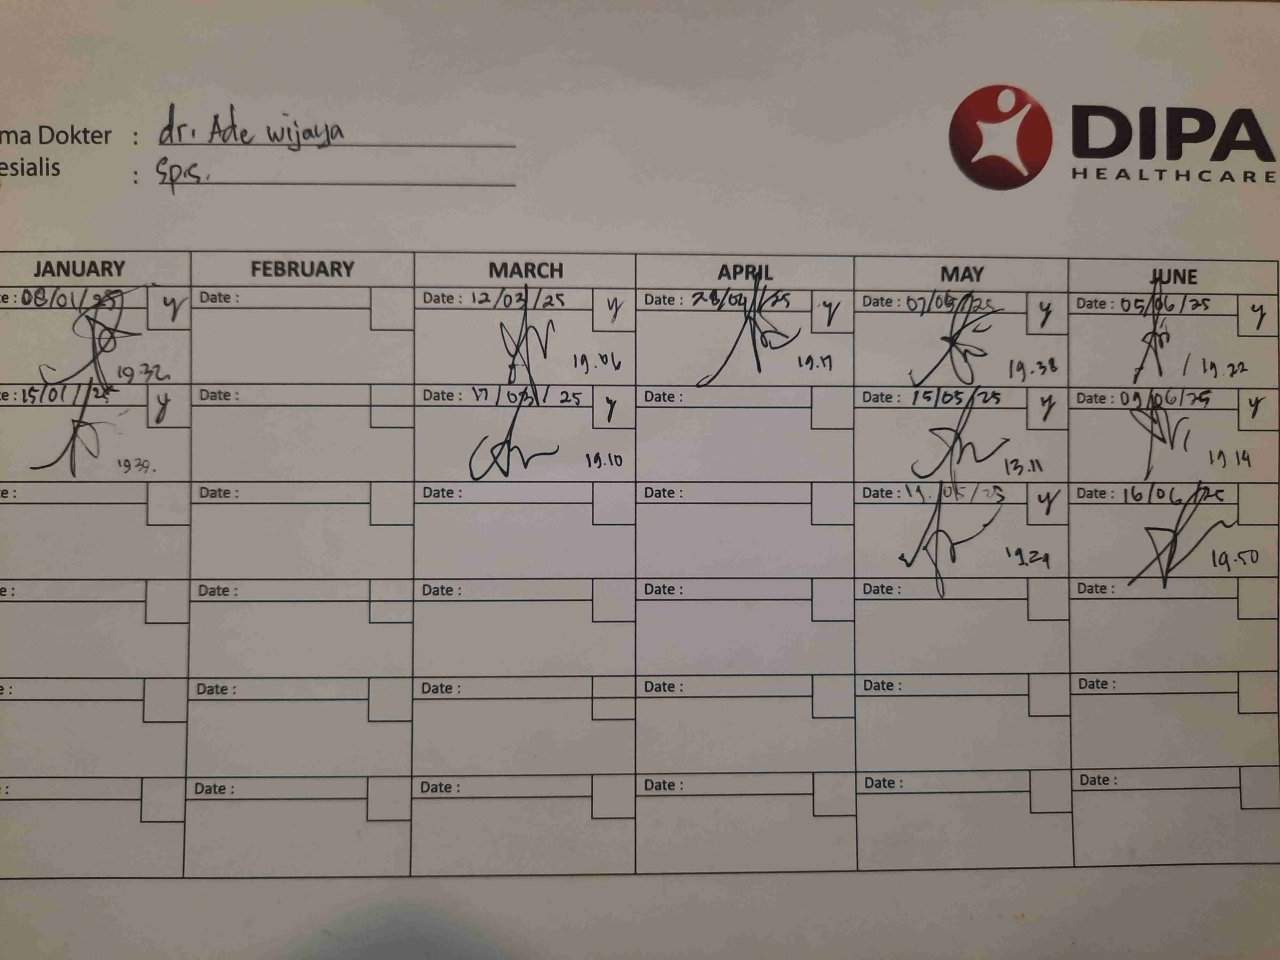 ma Dokter : dr. Ade wijaya
esialis : Sp.S.
DIPA
HEALTHCARE
JANUARY FEBRUARY MARCH APRIL MAY JUNE
e : 08/01/25 y Date : Date : 12/03/25 y Date : 28/04/25 y Date : 07/05/25 y Date : 05/06/25 y
19.32 19.06 19.17 19.38 19.22
e : 15/01/25 y Date : Date : 17/03/25 y Date : Date : 15/05/25 y Date : 09/06/25 y
19.39. 19.10 13.11 19.14
e : Date : Date : Date : Date : 19/05/25 y Date : 16/06/25
19.29 19.50
e : Date : Date : Date : Date : Date :
e : Date : Date : Date : Date : Date :
: Date : Date : Date : Date : Date :